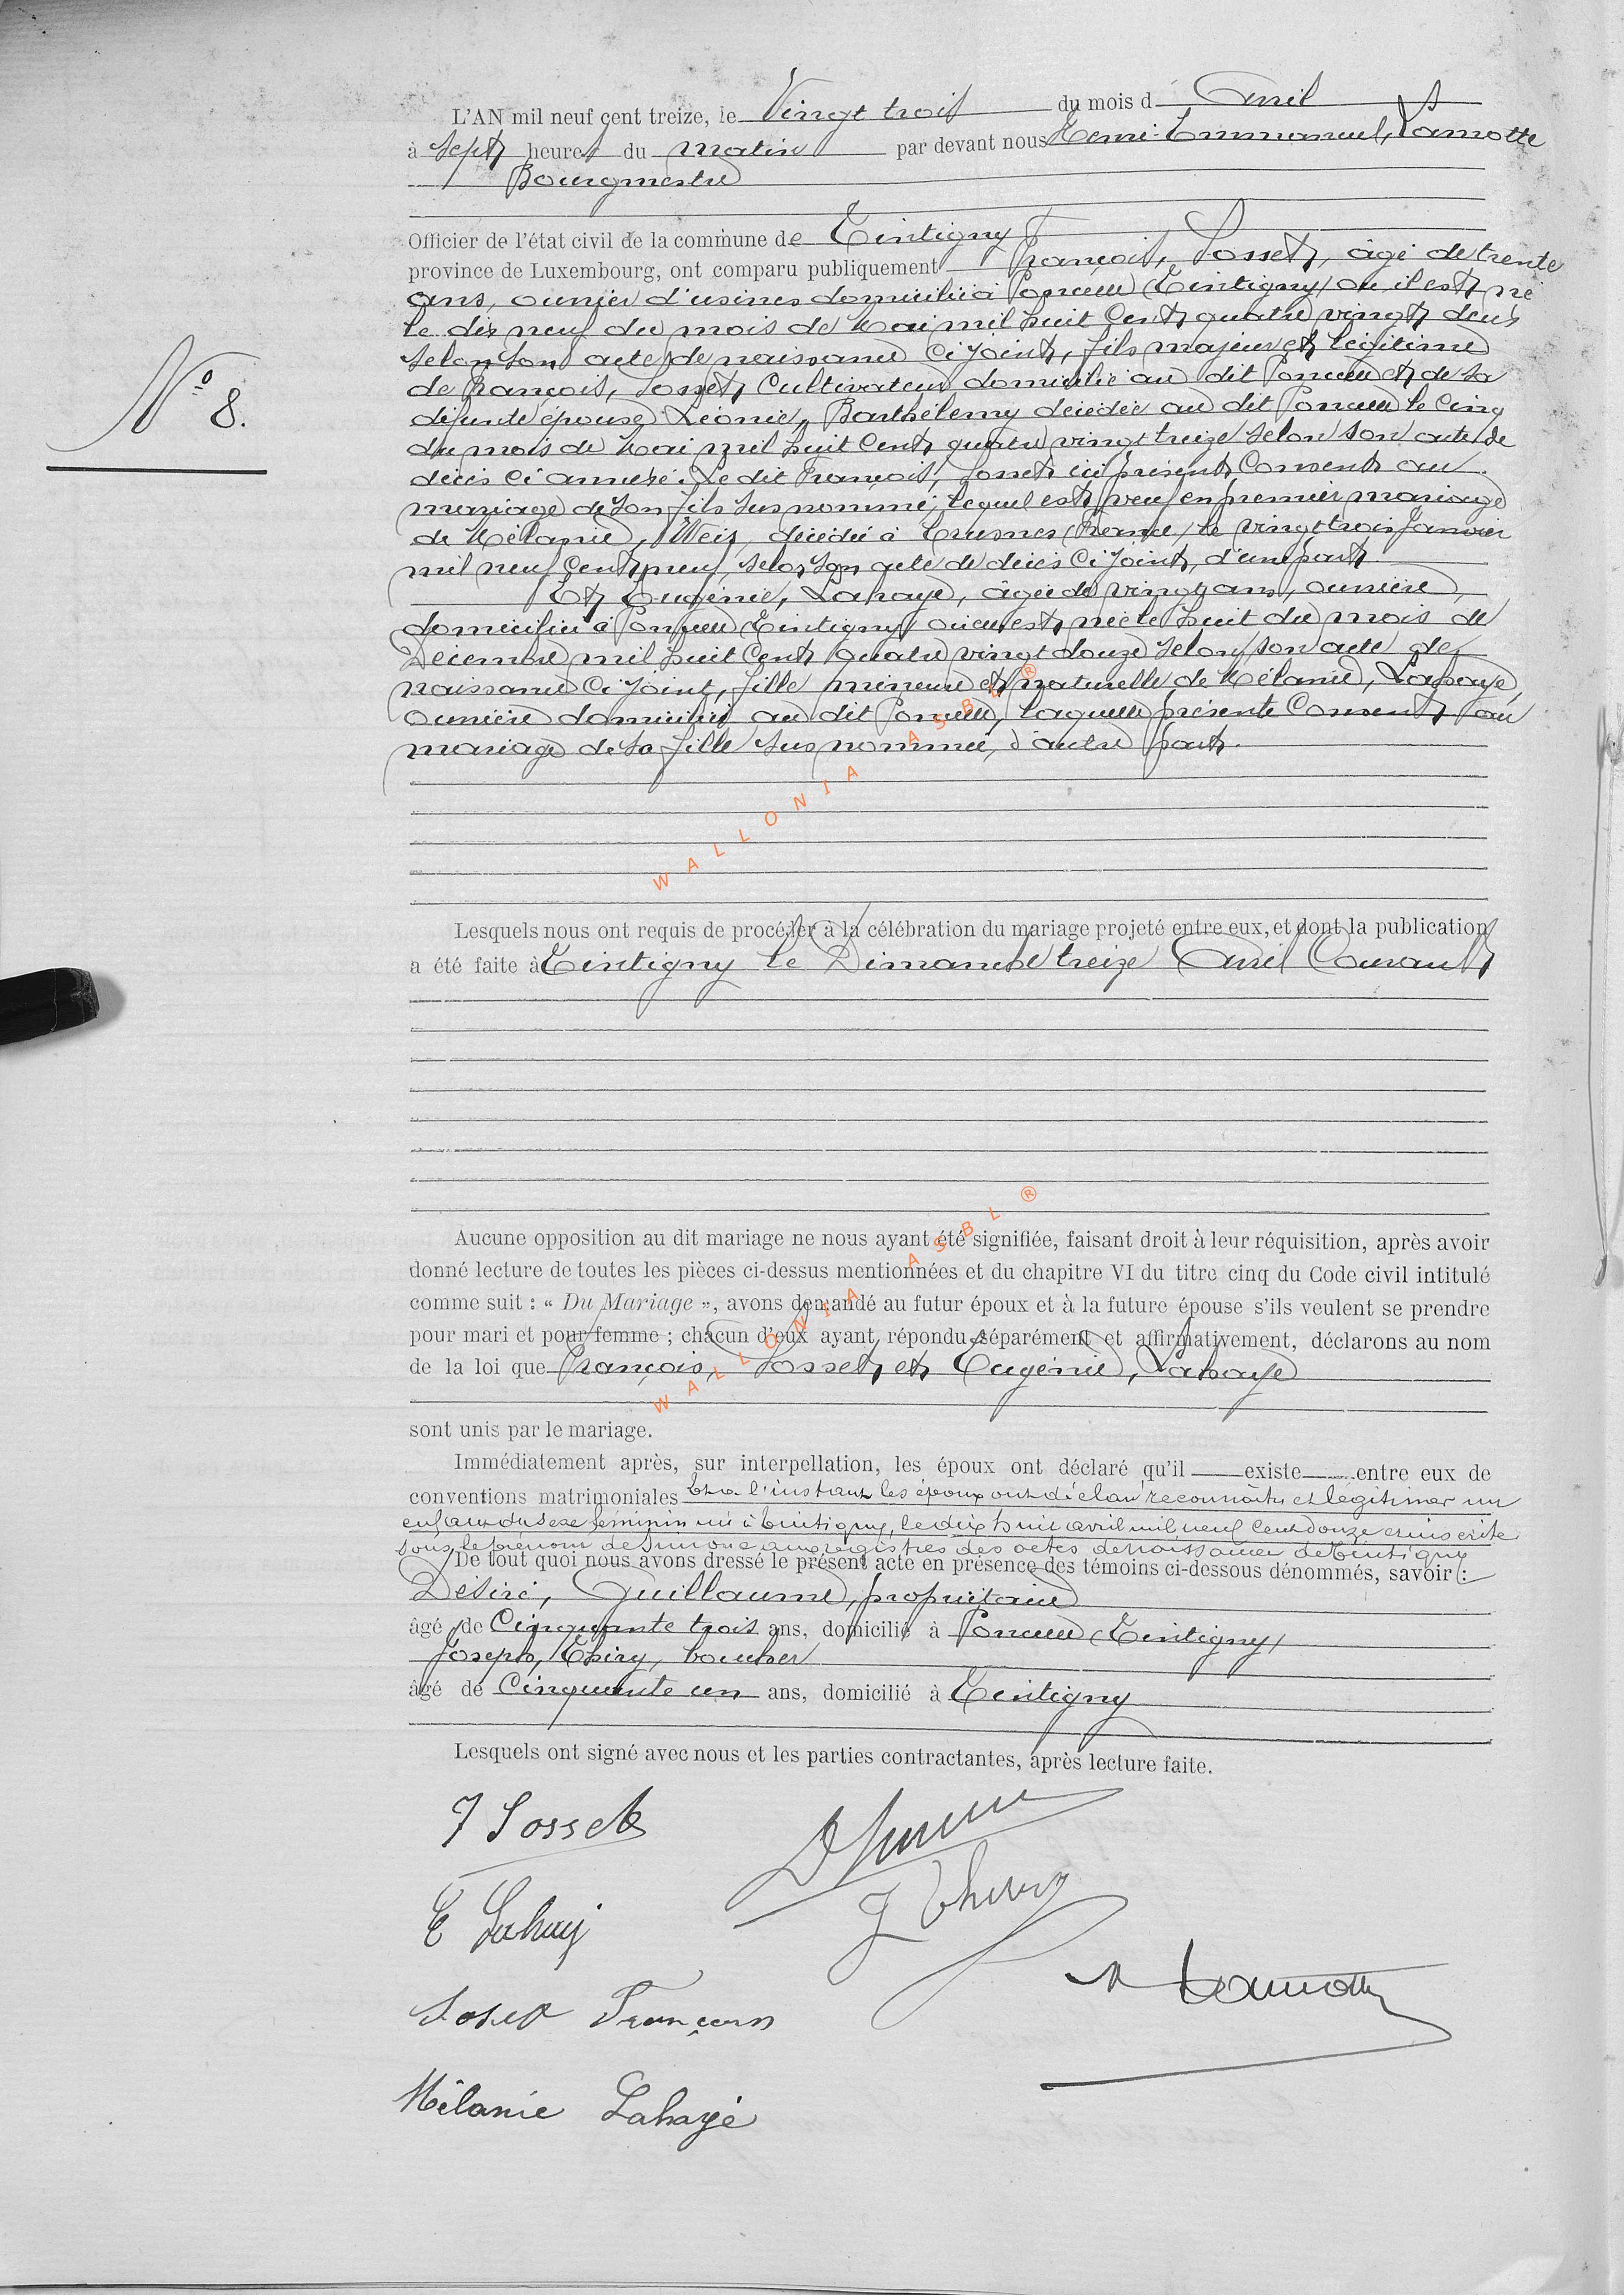 L'AN mil neuf cent treize, le Vingt trois du mois d Avril
à sept heures du matin par devant nous Henri-Emmanuel, Lamotte
Bourgmestre
Officier de l'état civil de la commune de Tintigny
province de Luxembourg, ont comparu publiquement François, Sosset, âgé de trente
ans, ouvrier d'usines domicilié à Poncelle (Tintigny) où il est né
le dix neuf du mois de Mai mil huit cent quatre vingt deux
N° 8.
selon son acte de naissance ci joint, fils majeur et légitime
de François, Sosset, Cultivateur domicilié au dit Poncelle et de sa
défunte épouse Léonie, Barthélemy décédée au dit Poncelle le Cinq
du mois de Mai mil huit cent quatre vingt treize selon son acte de
décès ci annexé. Le dit François, Sosset ici présent Consent au
mariage de son fils sus nommé, lequel est veuf en premier mariage
de Mélanie, Weis, décédée à (France) le vingt trois Janvier
mil neuf cent neuf, selon son acte de décès ci joint, d'une part.
Et Eugénie, Lahaye, âgée de vingt ans, ouvrière,
domiciliée à Poncelle (Tintigny) où elle est née le huit du mois de
Décembre mil huit cent quatre vingt douze selon son acte de
naissance ci joint, fille mineure et naturelle de Mélanie, Lahaye,
ouvrière domiciliée au dit Poncelle, laquelle présente Consent au
mariage de sa fille sus nommée, d'autre part.
WALLONIA ASBL ®
Lesquels nous ont requis de procéder à la célébration du mariage projeté entre eux, et dont la publication
a été faite à Tintigny le Dimanche treize Avril Courant
Aucune opposition au dit mariage ne nous ayant été signifiée, faisant droit à leur réquisition, après avoir
donné lecture de toutes les pièces ci-dessus mentionnées et du chapitre VI du titre cinq du Code civil intitulé
comme suit : « Du Mariage », avons demandé au futur époux et à la future épouse s'ils veulent se prendre
pour mari et pour femme ; chacun d'eux ayant répondu séparément et affirmativement, déclarons au nom
de la loi que François, Sosset et Eugénie, Lahaye
WALLONIA ASBL ®
sont unis par le mariage.
Immédiatement après, sur interpellation, les époux ont déclaré qu'il existe entre eux de
conventions matrimoniales Et à l'instant les époux ont déclaré reconnaître et légitimer un
enfant du sexe féminin né à Tintigny, le dix huit avril mil neuf cent douze et inscrite
sous le prénom de Simone aux registres des actes de naissance de Tintigny
De tout quoi nous avons dressé le présent acte en présence des témoins ci-dessous dénommés, savoir :
Désiré, Guillaume, propriétaire
âgé de Cinquante trois ans, domicilié à Poncelle (Tintigny)
Joseph, Thiry, boucher
âgé de Cinquante un ans, domicilié à Tintigny
Lesquels ont signé avec nous et les parties contractantes, après lecture faite.
F Sosset
J Thiry
E Lahaye
H Lamotte
Sosset François
Mélanie Lahaye